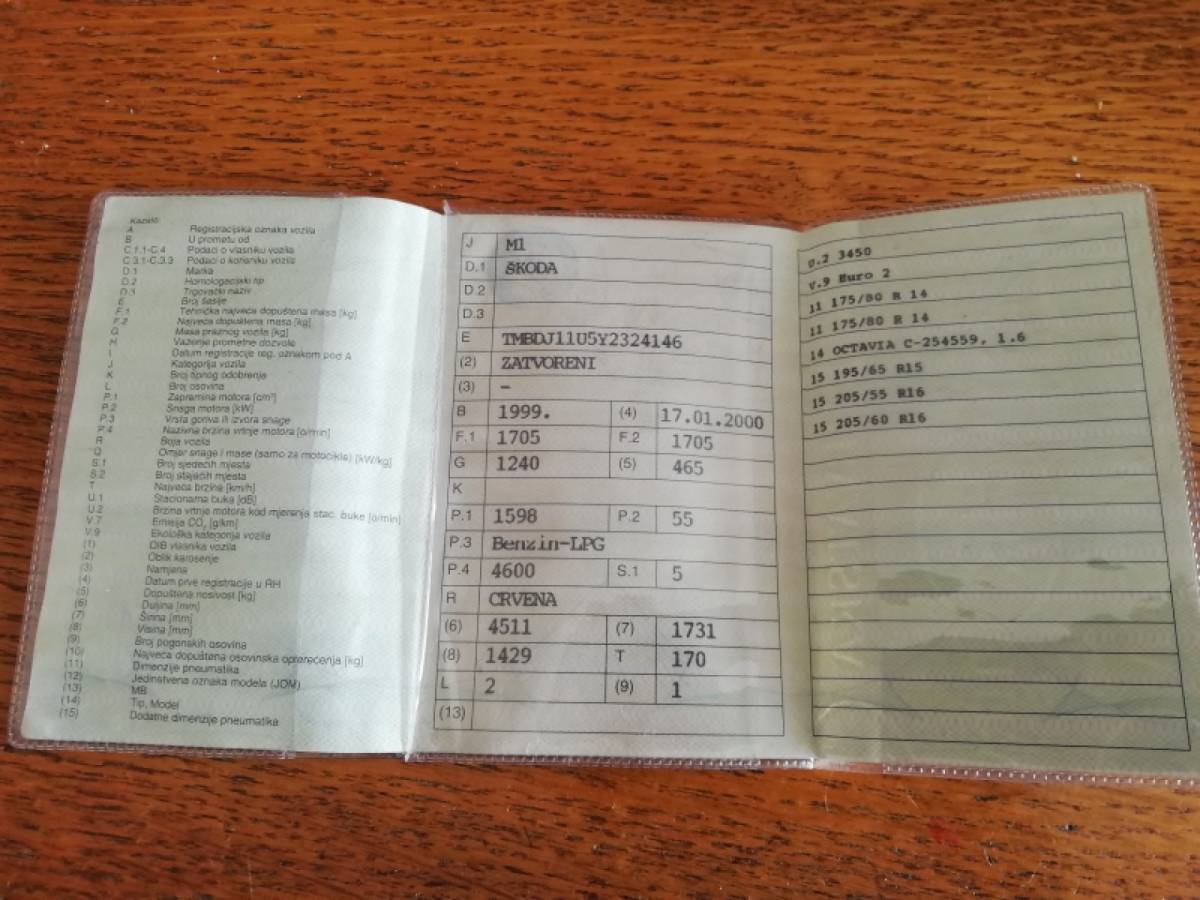 Kazalo:
A Registracijska oznaka vozila
B U prometu od
C.1.1-C.4 Podaci o vlasniku vozila
C.3.1-C.3.3 Podaci o korisniku vozila
D.1 Marka
D.2 Homologacijski tip
D.3 Trgovački naziv
E Broj šasije
F.1 Tehnička najveća dopuštena masa [kg]
F.2 Najveća dopuštena masa [kg]
G Masa praznog vozila [kg]
H Važenje prometne dozvole
I Datum registracije reg. oznakom pod A
J Kategorija vozila
K Broj tipnog odobrenja
L Broj osovina
P.1 Zapremina motora [cm³]
P.2 Snaga motora [kW]
P.3 Vrsta goriva ili izvora snage
P.4 Nazivna brzina vrtnje motora [o/min]
R Boja vozila
Q Omjer snage i mase (samo za motocikle) [kW/kg]
S.1 Broj sjedećih mjesta
S.2 Broj stajaćih mjesta
T Najveća brzina [km/h]
U.1 Stacionarna buka [dB]
U.2 Brzina vrtnje motora kod mjerenja stac. buke [o/min]
V.7 Emisija CO₂ [g/km]
V.9 Ekološka kategorija vozila
(1) OIB vlasnika vozila
(2) Oblik karoserije
(3) Namjena
(4) Datum prve registracije u RH
(5) Dopuštena nosivost [kg]
(6) Duljina [mm]
(7) Širina [mm]
(8) Visina [mm]
(9) Broj pogonskih osovina
(10) Najveća dopuštena osovinska opterećenja [kg]
(11) Dimenzije pneumatika
(12) Jedinstvena oznaka modela (JOM)
(13) MB
(14) Tip, Model
(15) Dodatne dimenzije pneumatika
J M1
D.1 ŠKODA
D.2
D.3
E TMBDJ11U5Y2324146
(2) ZATVORENI
(3) -
B 1999. (4) 17.01.2000
F.1 1705 F.2 1705
G 1240 (5) 465
K
P.1 1598 P.2 55
P.3 Benzin-LPG
P.4 4600 S.1 5
R CRVENA
(6) 4511 (7) 1731
(8) 1429 T 170
L 2 (9) 1
(13)
U.2 3450
V.9 Euro 2
11 175/80 R 14
11 175/80 R 14
14 OCTAVIA C-254559, 1.6
15 195/65 R15
15 205/55 R16
15 205/60 R16